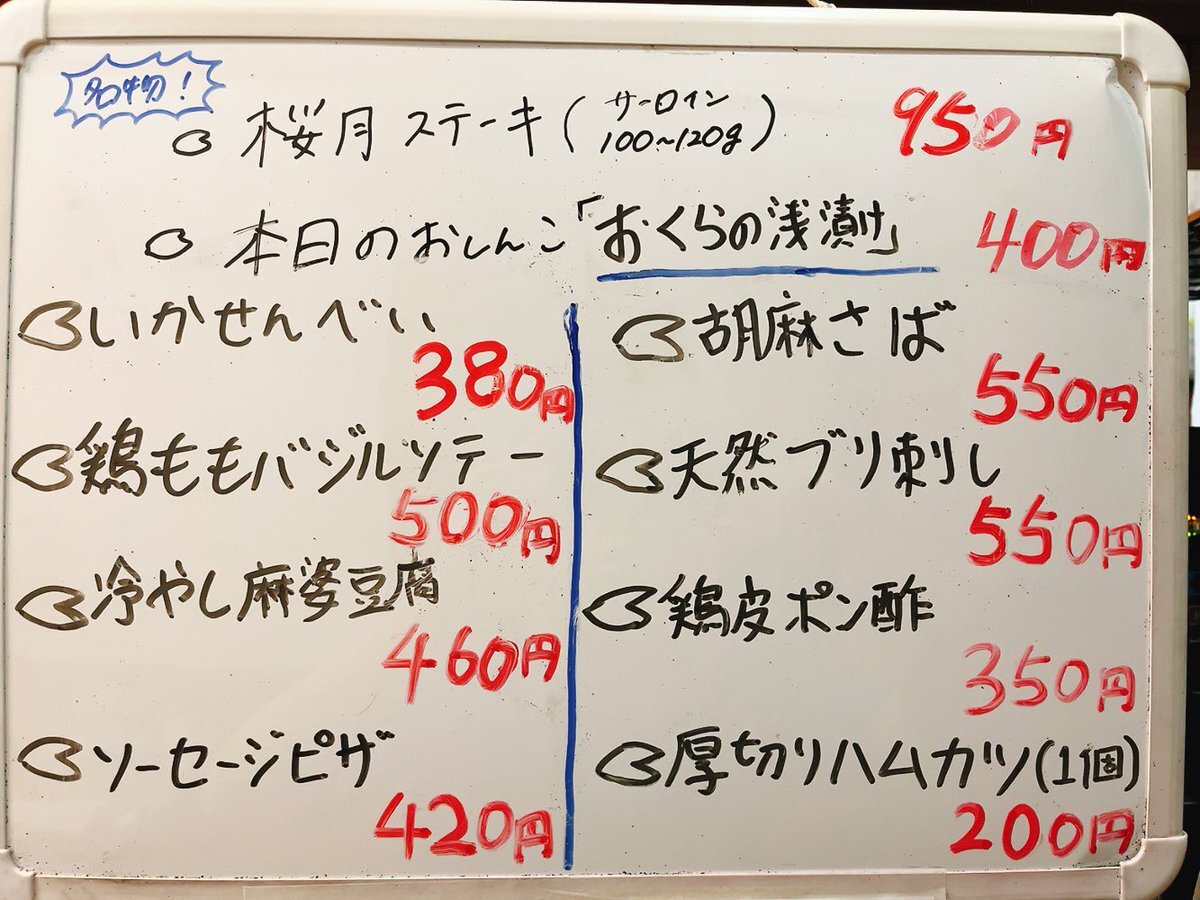 名物!
桜月ステーキ(サーロイン100~120g) 950円
本日のおしんこ「おくらの浅漬け」 400円
いかせんべい
380円
鶏ももバジルソテー
500円
冷やし麻婆豆腐
460円
ソーセージピザ
420円
胡麻さば
550円
天然ブリ刺し
550円
鶏皮ポン酢
350円
厚切りハムカツ(1個)
200円